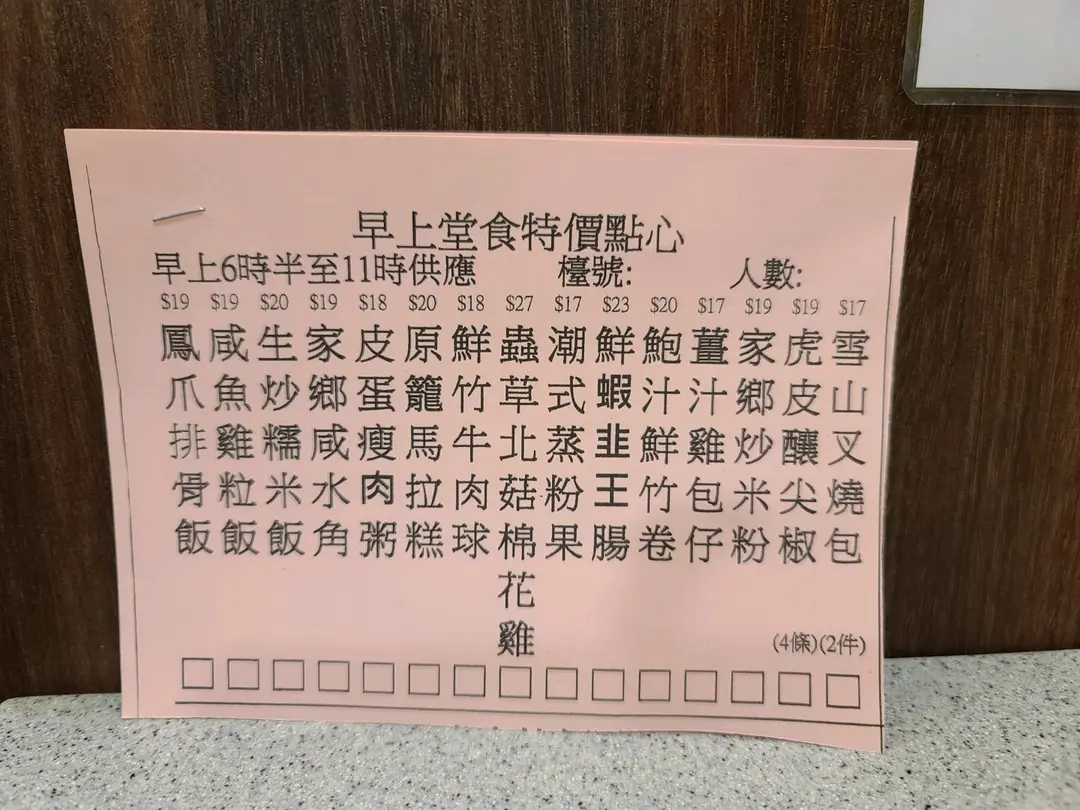 早上堂食特價點心
早上6時半至11時供應 檯號: 人數:
$19 $19 $20 $19 $18 $20 $18 $27 $17 $23 $20 $17 $19 $19 $17
雪山叉燒包
虎皮釀尖椒
家鄉炒米粉
薑汁雞包仔
鮑汁鮮竹卷
鮮蝦韭王腸
潮式蒸粉果
蟲草北菇棉花雞
鮮竹牛肉球
原籠馬拉糕
皮蛋瘦肉粥
家鄉咸水角
生炒糯米飯
咸魚雞粒飯
鳳爪排骨飯
(4條)(2件)